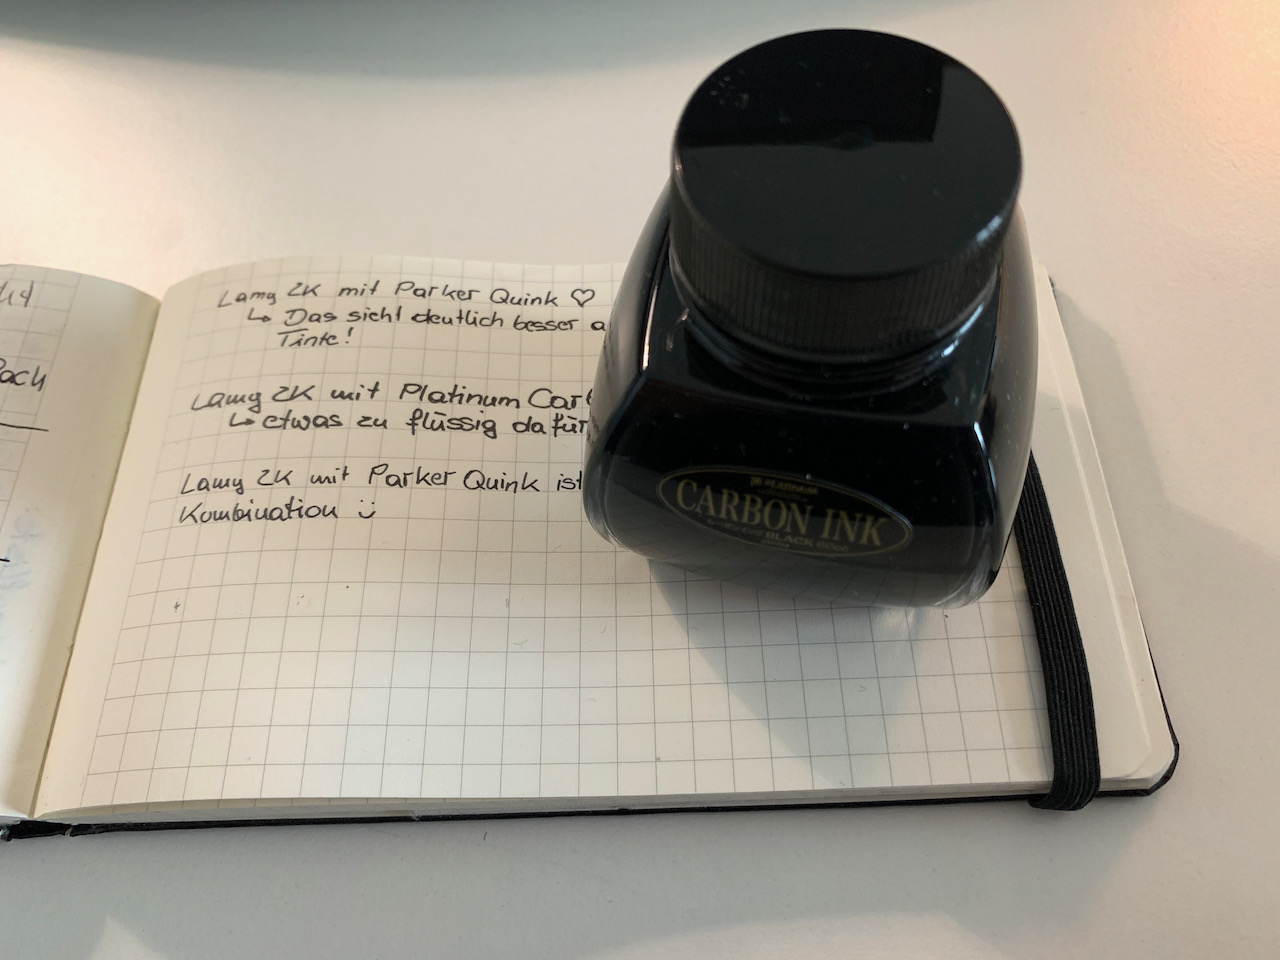 Lamy 2K mit Parker Quink ♡
↳ Das sieht deutlich besser a
Tinte!
Lamy 2K mit Platinum Car
↳ etwas zu flüssig dafür
Lamy 2K mit Parker Quink ist
Kombination ü
PLATINUM
CARBON INK
BLACK 60cc